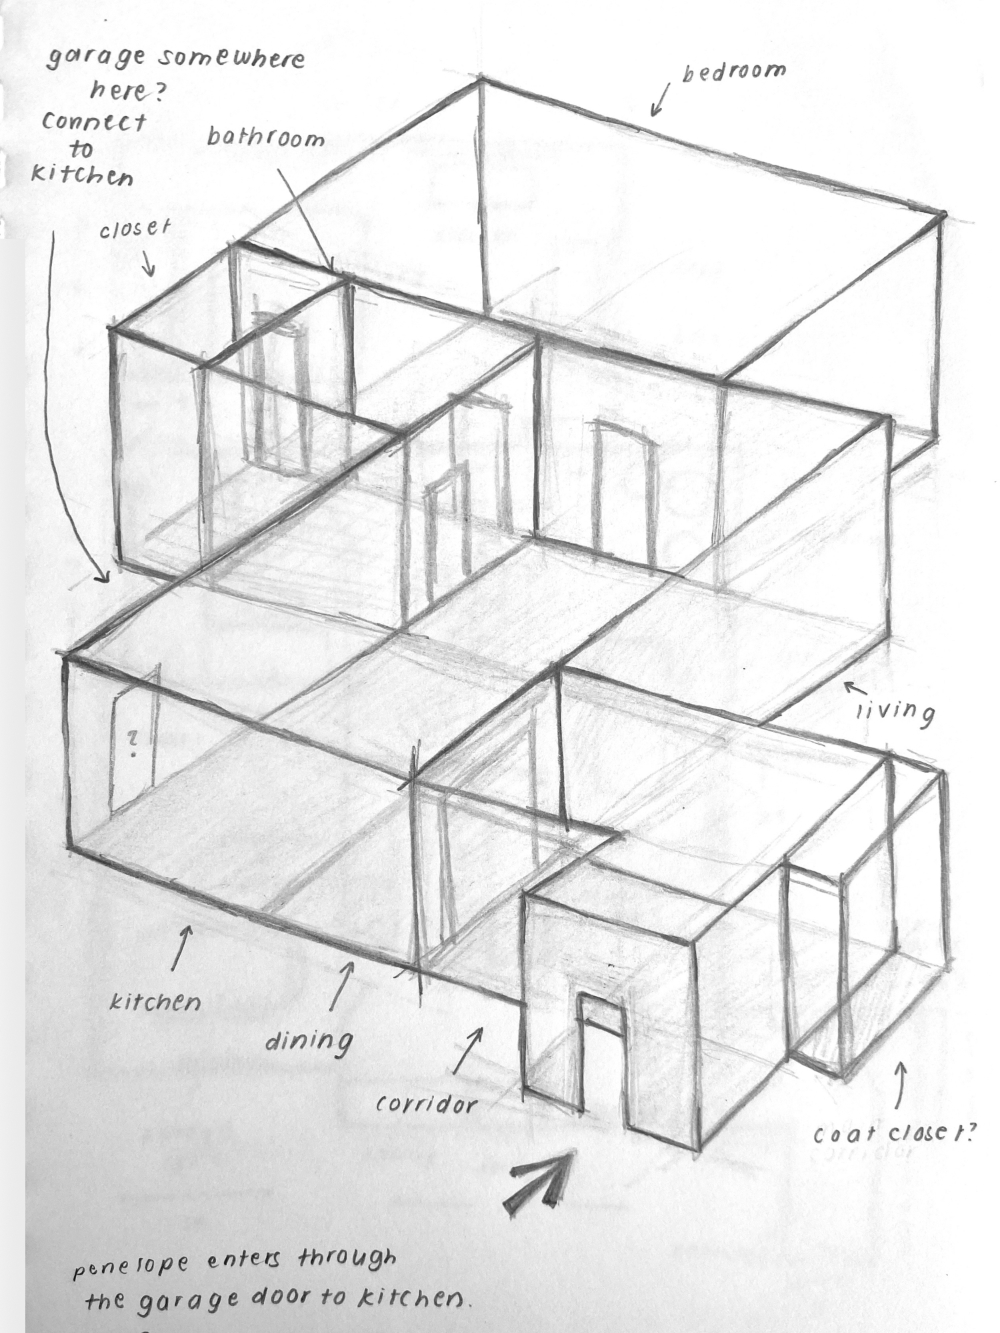 garage somewhere
here?
connect
to
kitchen
bathroom
bedroom
closet
?
living
kitchen
dining
corridor
coat closet?
penelope enters through
the garage door to kitchen.